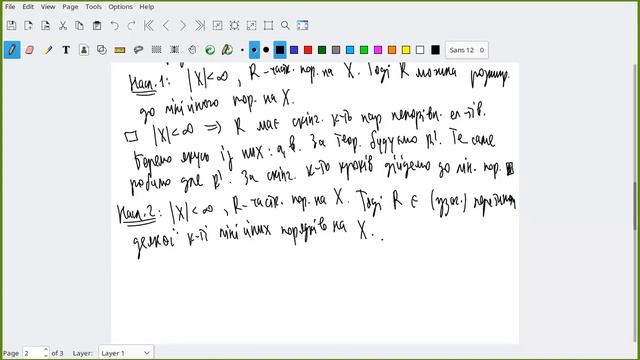 File Edit View Page Tools Options Help
Sans 12 0
Насл.1: |X|<∞, R-частк. пор. на X. Тоді R можна розшир.
до лінійного пор. на X.
□ |X|<∞ ⇒ R має скінч. к-ть пар непорівн. ел-тів.
Беремо якусь із них: a, b. За теор. будуємо R'. Те саме
робимо для R'. За скінч. к-ть кроків дійдемо до лін. пор.
Насл.2: |X|<∞, R-частк. пор. на X. Тоді R є перетином
деякої к-ті лінійних порядків на X.
Page 2 of 3 Layer: Layer 1